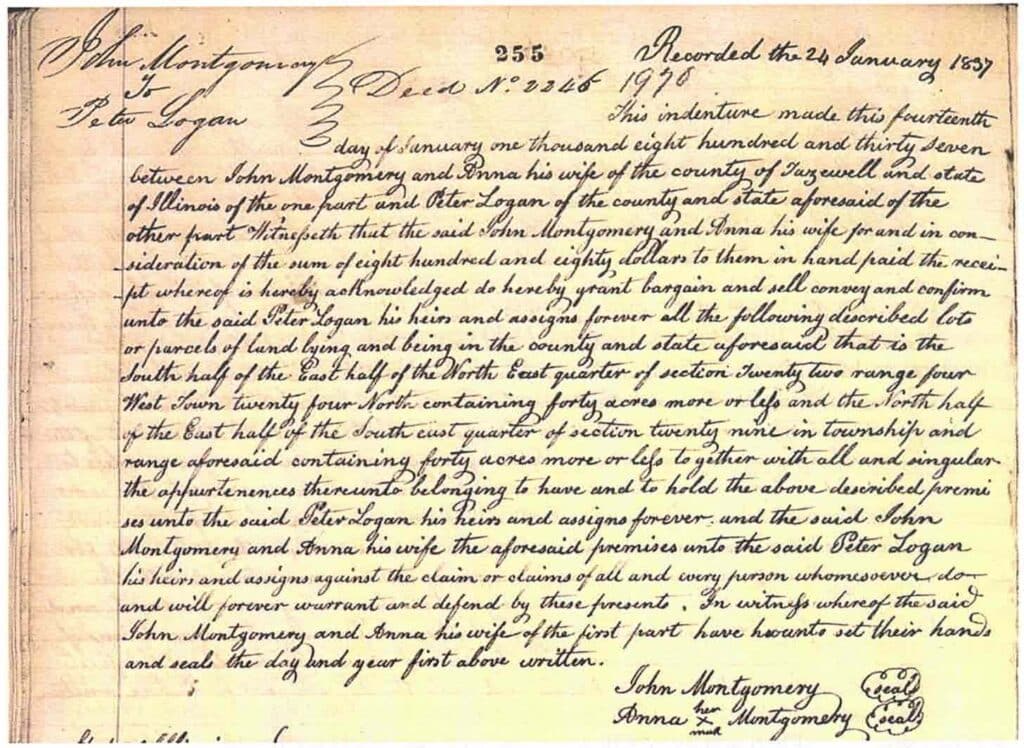 John Montgomery
To
Peter Logan
255
Deed No. 2246 1970
Recorded the 24 January 1837
This indenture made this fourteenth
day of January one thousand eight hundred and thirty seven
between John Montgomery and Anna his wife of the county of Tazewell and state
of Illinois of the one part and Peter Logan of the county and state aforesaid of the
other part Witnesseth that the said John Montgomery and Anna his wife for and in con–
–sideration of the sum of eight hundred and eighty dollars to them in hand paid the recei–
–pt whereof is hereby acknowledged do hereby grant bargain and sell convey and confirm
unto the said Peter Logan his heirs and assigns forever all the following described lots
or parcels of land lying and being in the county and state aforesaid that is the
South half of the East half of the North East quarter of section Twenty two range four
West Town twenty four North containing forty acres more or less and the North half
of the East half of the South east quarter of section twenty nine in township and
range aforesaid containing forty acres more or less together with all and singular
the appurtenences thereunto belonging to have and to hold the above described premi
ses unto the said Peter Logan his heirs and assigns forever. and the said John
Montgomery and Anna his wife the aforesaid premises unto the said Peter Logan
his heirs and assigns against the claim or claims of all and every person whomsoever do
and will forever warrant and defend by these presents. In witness whereof the said
John Montgomery and Anna his wife of the first part have hereunto set their hands
and seals the day and year first above written.
John Montgomery seal
Anna her x mark Montgomery seal